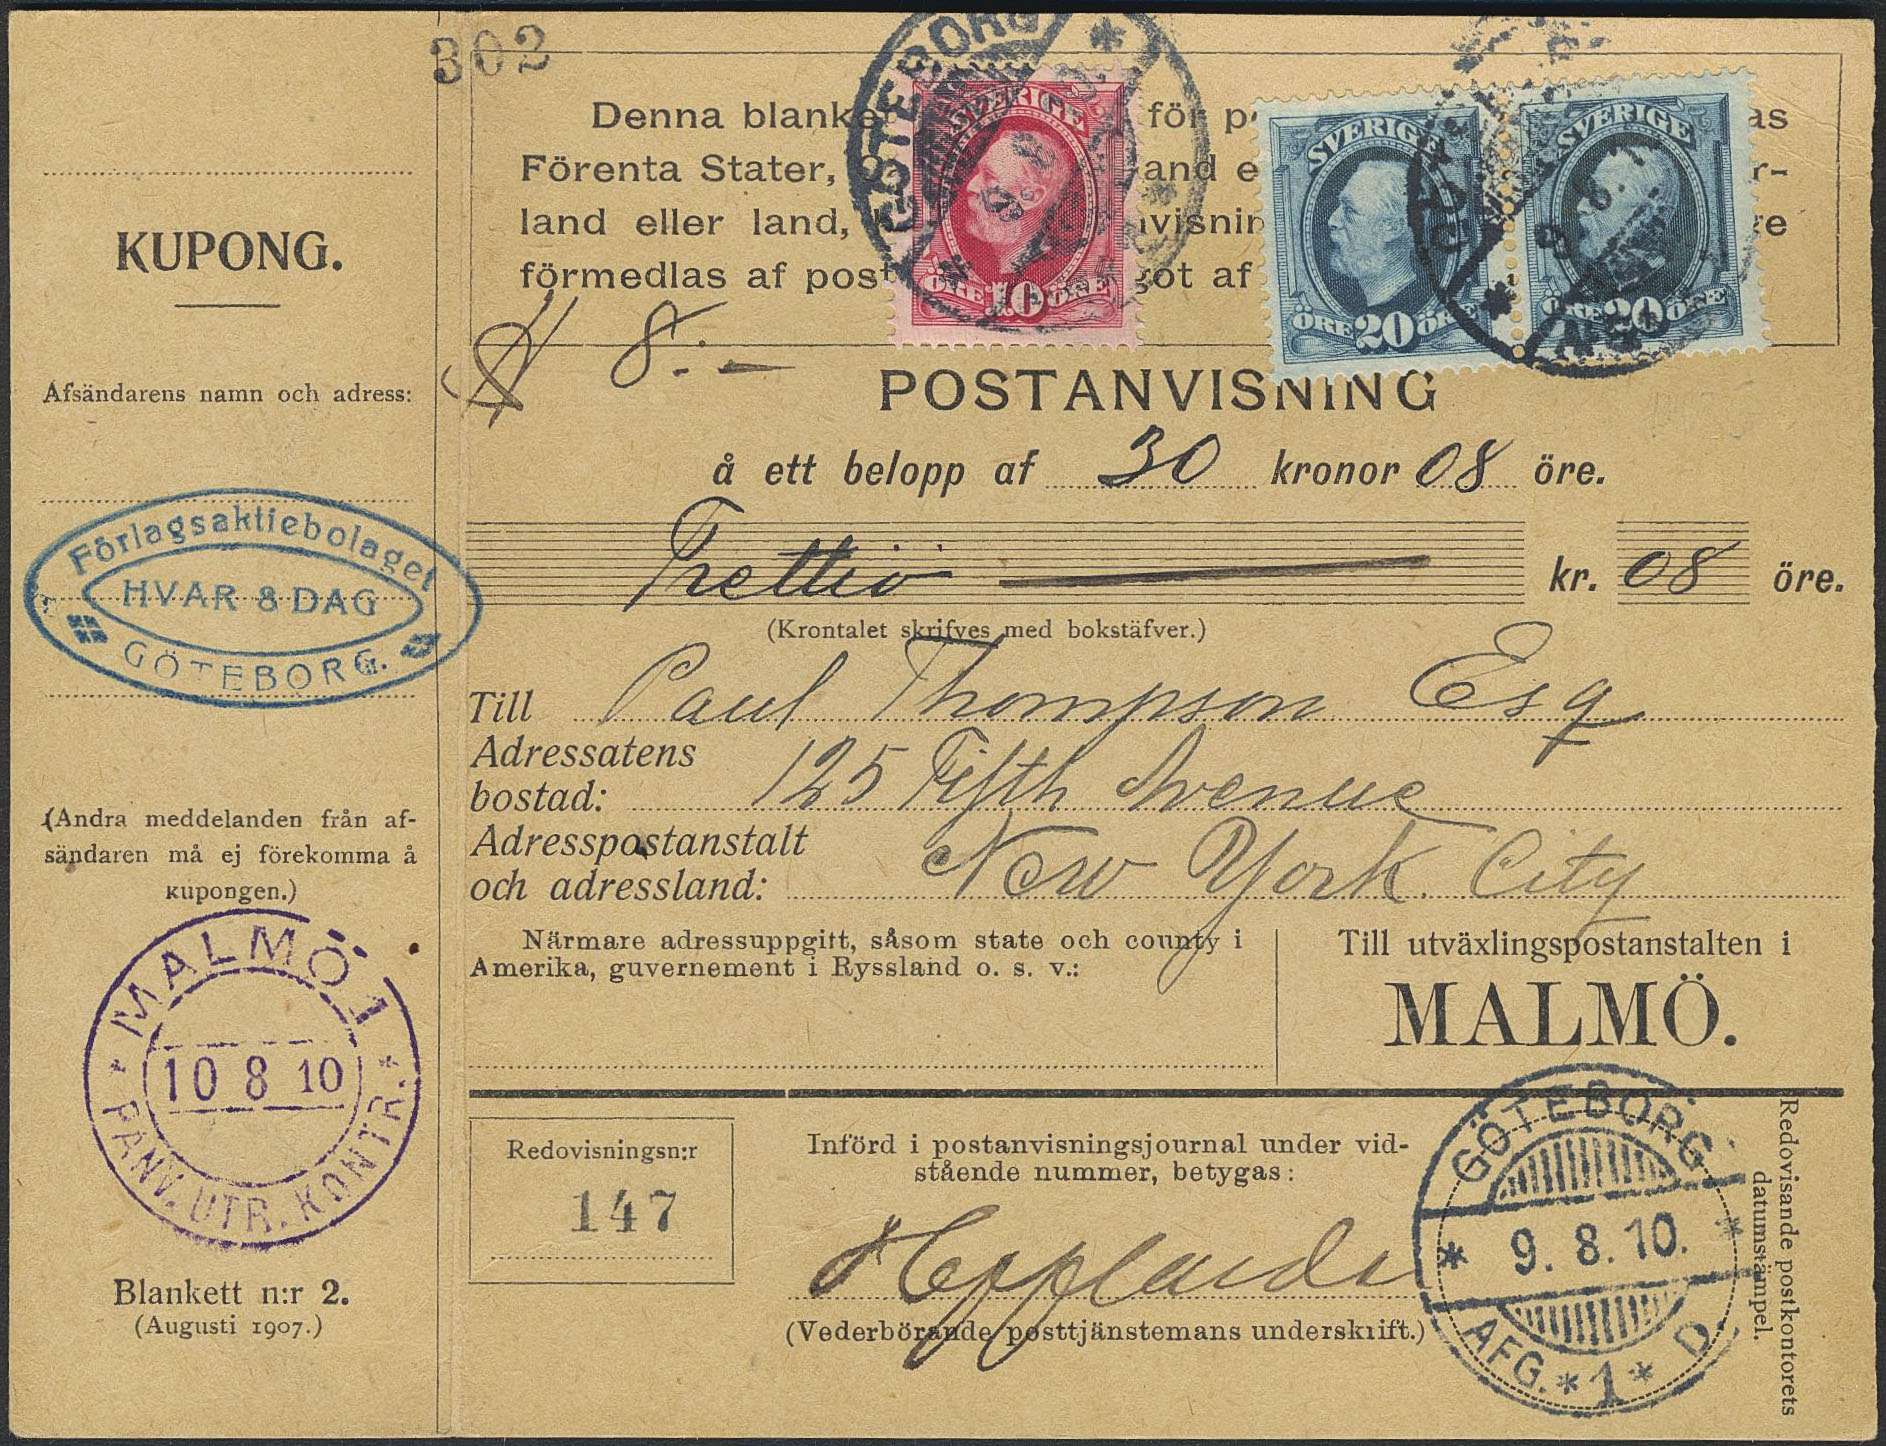 302
KUPONG.
Afsändarens namn och adress:
Förlagsaktiebolaget
HVAR 8 DAG
GÖTEBORG.
(Andra meddelanden från af-
sändaren må ej förekomma å
kupongen.)
MALMÖ 1
10 8 10
PANV. UTR. KONTR.
Blankett n:r 2.
(Augusti 1907.)
Denna blanket för
Förenta Stater,
land eller land,
förmedlas af post got af
GÖTEBORG
SVERIGE
ÖRE 10 ÖRE
SVERIGE
ÖRE 20 ÖRE
SVERIGE
ÖRE 20 ÖRE
$ 8.-
POSTANVISNING
å ett belopp af 30 kronor 08 öre.
Trettio kr. 08 öre.
(Krontalet skrifves med bokstäfver.)
Till Paul Thompson Esq
Adressatens
bostad: 125 Fifth Avenue
Adresspostanstalt
och adressland: New York City
Närmare adressuppgift, såsom state och county i
Amerika, guvernement i Ryssland o. s. v.:
Till utväxlingspostanstalten i
MALMÖ.
Redovisningsn:r
147
Införd i postanvisningsjournal under vid-
stående nummer, betygas:
(Vederbörande posttjänstemans underskrift.)
GÖTEBORG
9. 8. 10.
AFG. 1 D.
Redovisande postkontorets
datumstämpel.